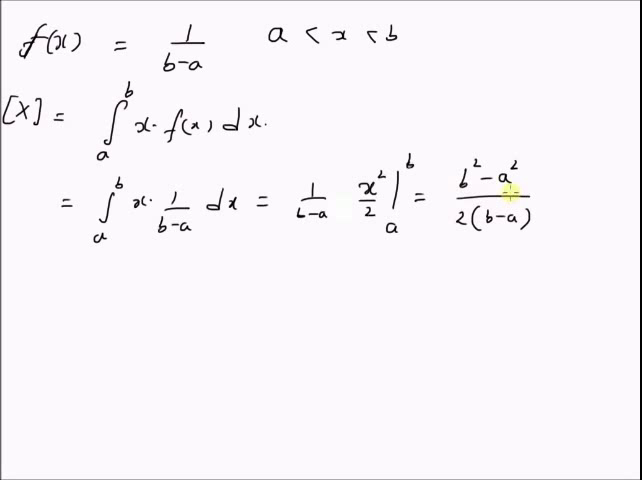 f(x) = 1/(b-a) a < x < b
[X] = ∫_a^b x. f(x) dx.
= ∫_a^b x. 1/(b-a) dx = 1/(b-a) x²/2 |_a^b = (b²-a²)/(2(b-a))